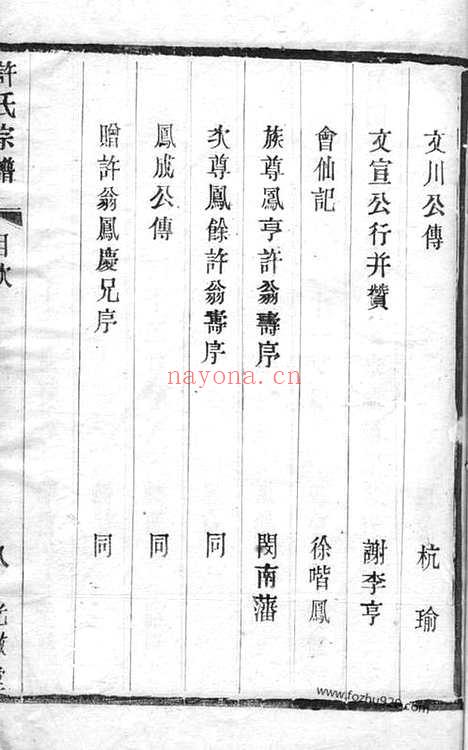 文川公傳 杭瑜
文宣公行并贊 謝李亨
會仙記 徐喈鳳
族尊鳳亨許翁壽序 閔南藩
次尊鳳餘許翁壽序 同
鳳成公傳 同
贈許翁鳳慶兄序 同
許氏宗譜 目次 八
nayona.cn